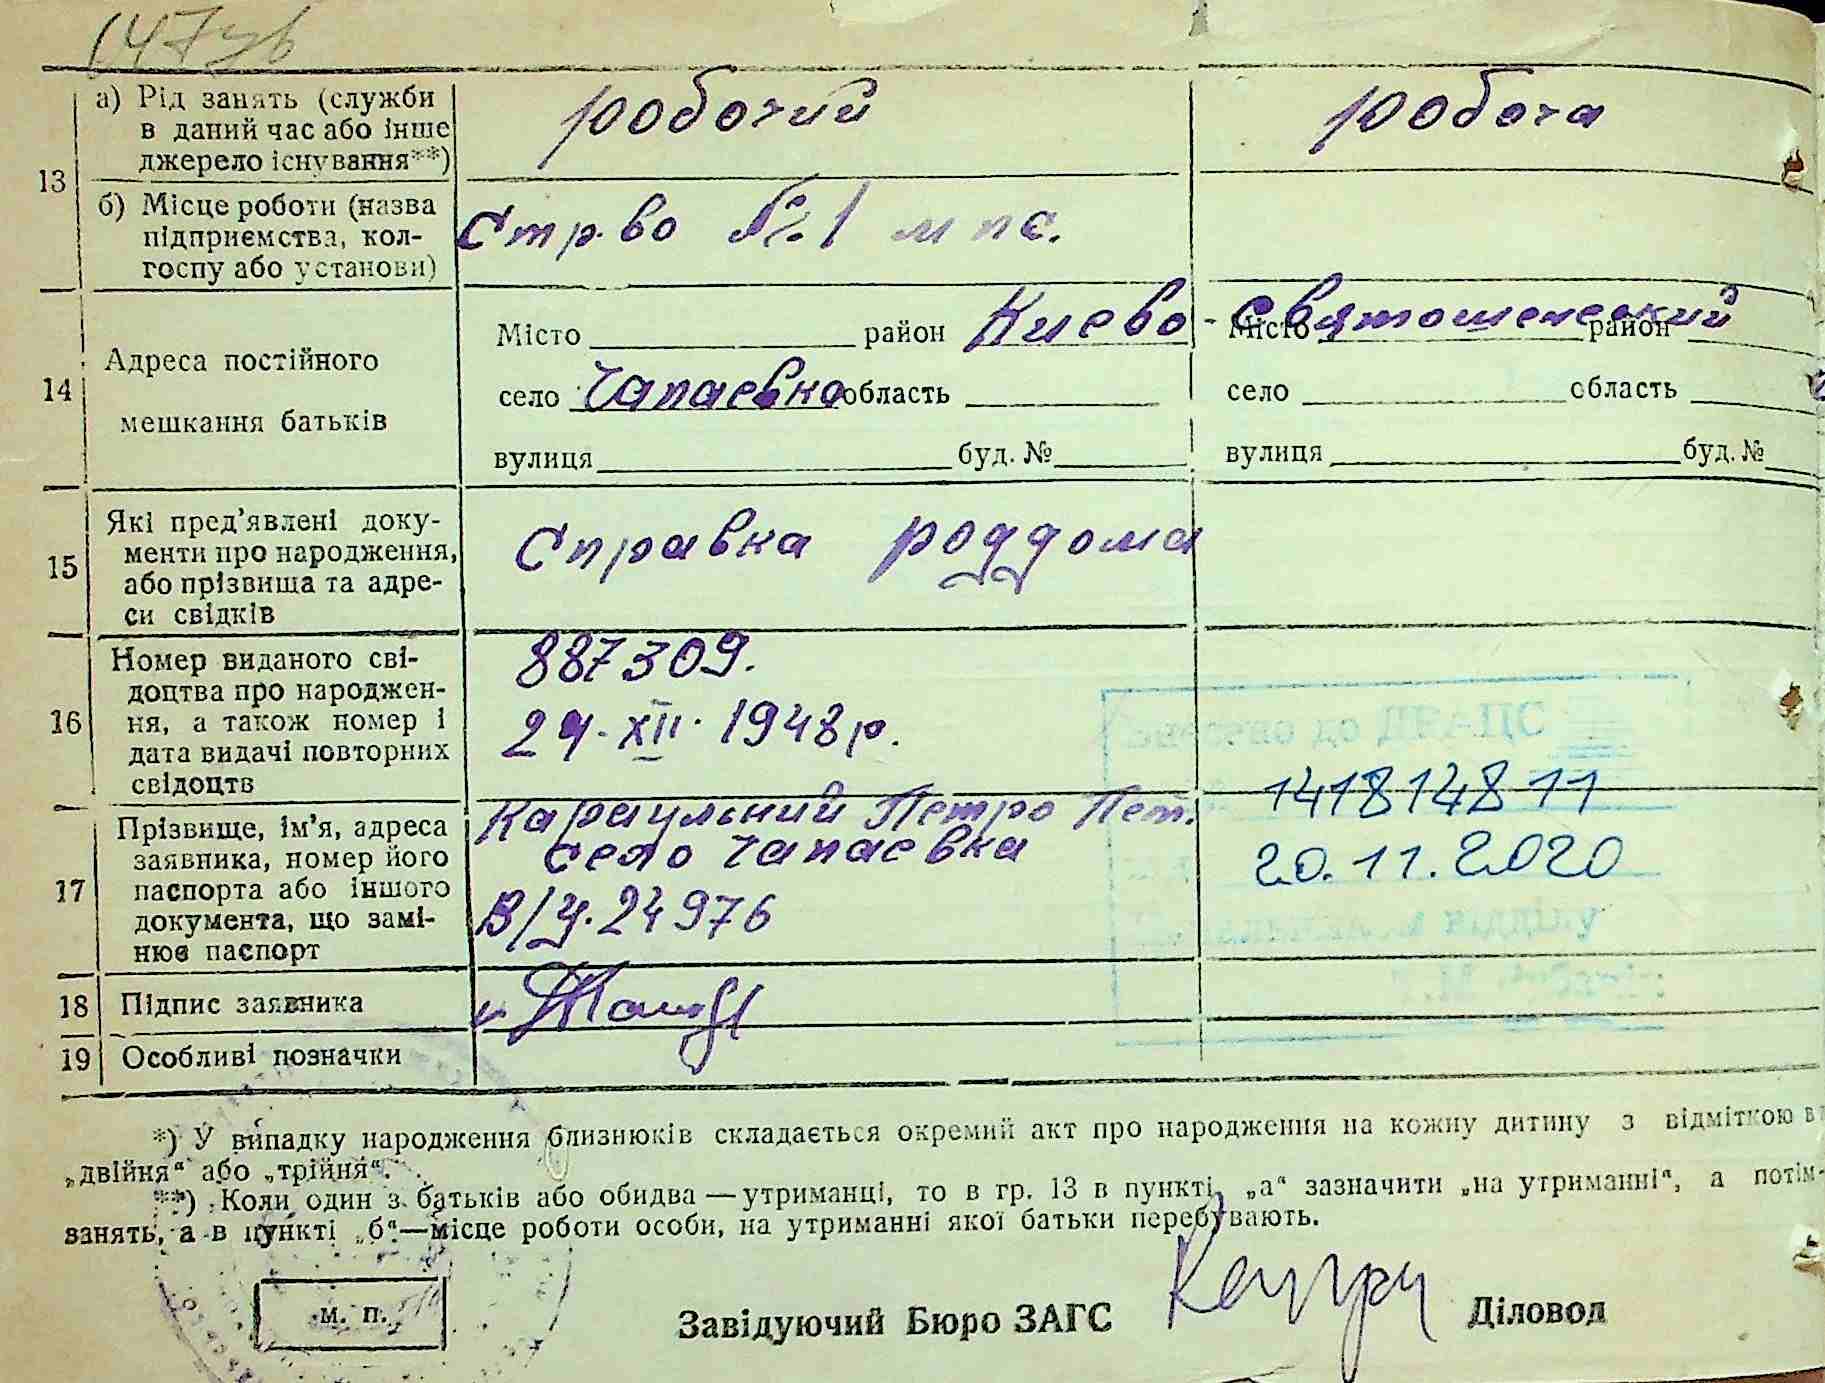 147
а) Рід занять (служби
в даний час або інше
джерело існування**)
робочий
робоча
13
б) Місце роботи (назва
підприємства, кол-
госпу або установи)
Стр-во №1 мпс.
14
Адреса постійного
мешкання батьків
Місто район Києво-Святошенський
село Чапаевка область
вулиця буд. №
Місто район
село область
вулиця буд. №
15
Які пред'явлені доку-
менти про народження,
або прізвища та адре-
си свідків
Справка роддома
16
Номер виданого сві-
доцтва про народжен-
ня, а також номер і
дата видачі повторних
свідоцтв
887309.
24·XII·1948р.
внесено до ДРАЦС
1418148 11
20.11.2020
17
Прізвище, ім'я, адреса
заявника, номер його
паспорта або іншого
документа, що замі-
нює паспорт
Караульний Петро Пет.
село Чапаевка
В/у. 24976
18 Підпис заявника
19 Особливі позначки
*) У випадку народження близнюків складається окремий акт про народження на кожну дитину з відміткою
„двійня“ або „трійня“.
**) Коли один з батьків або обидва — утриманці, то в гр. 13 в пункті „а“ зазначити „на утриманні“, а потім
занять, а в пункті „б“ — місце роботи особи, на утриманні якої батьки перебувають.
м. п.
Завідуючий Бюро ЗАГС
Діловод